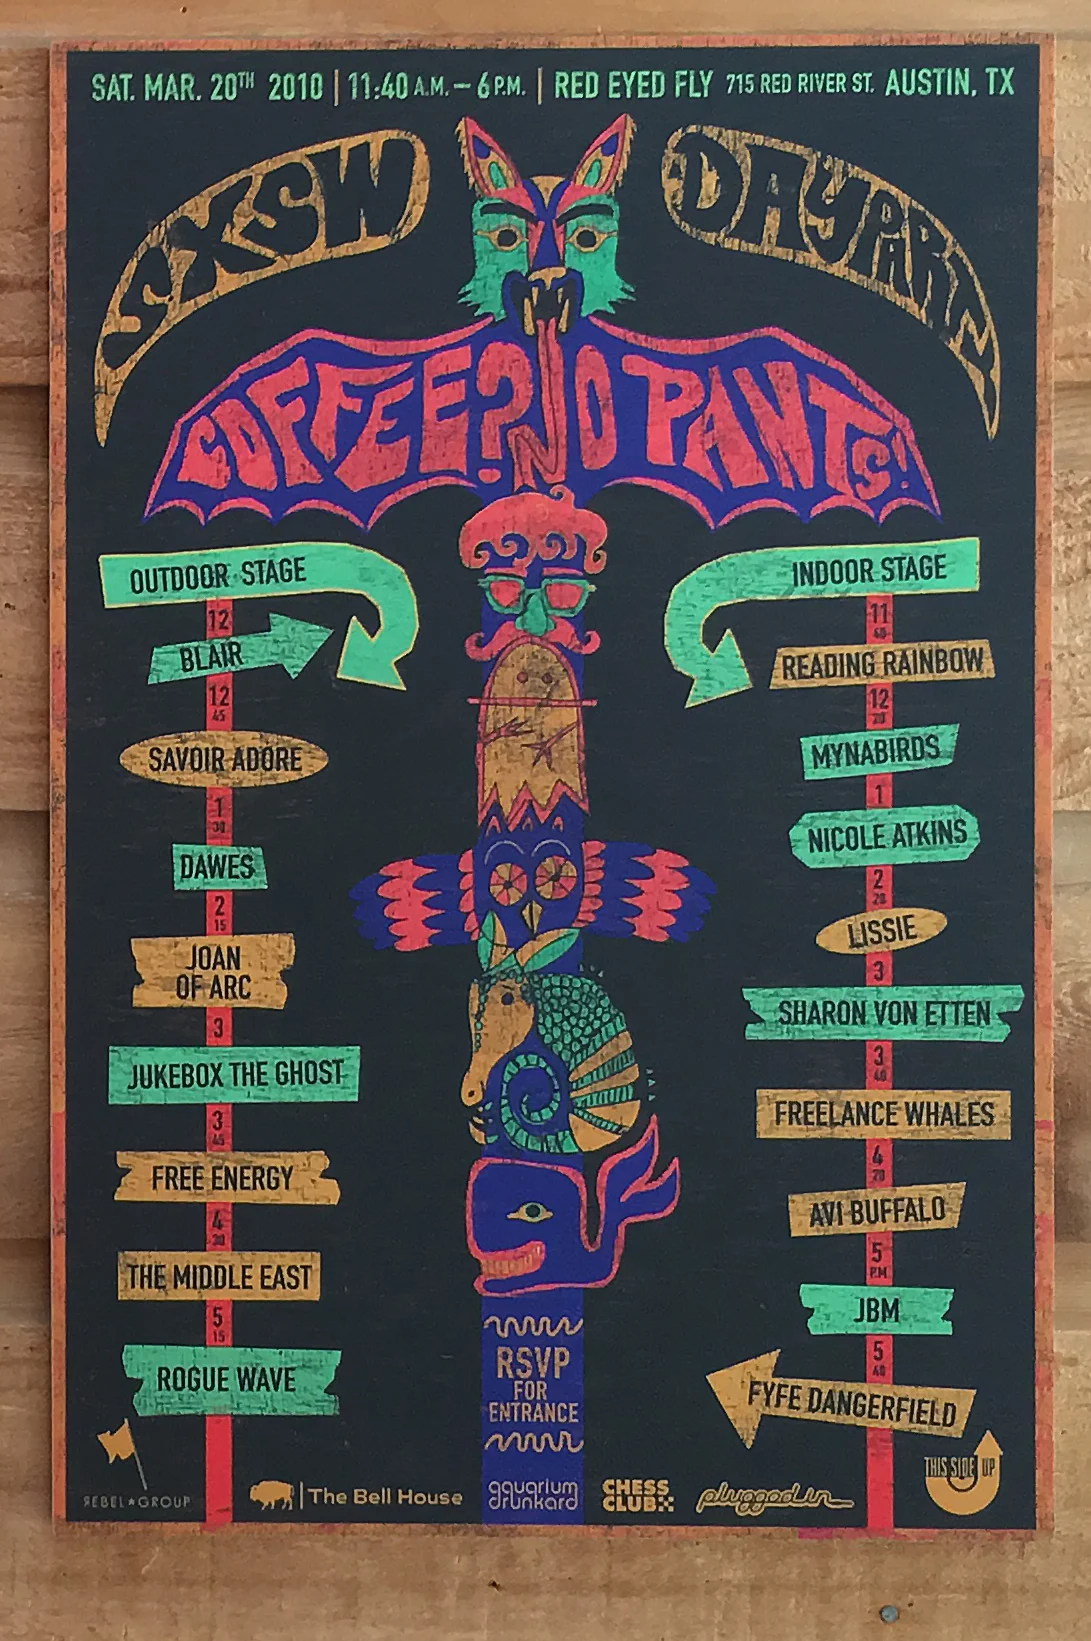 SAT. MAR. 20TH 2010 | 11:40 A.M. – 6 P.M. | RED EYED FLY 715 RED RIVER ST. AUSTIN, TX
SXSW DAY PARTY
COFFEE? NO PANTS!
OUTDOOR STAGE
12
BLAIR
12 45
SAVOIR ADORE
1 30
DAWES
2 15
JOAN
OF ARC
3
JUKEBOX THE GHOST
3 45
FREE ENERGY
4 30
THE MIDDLE EAST
5 15
ROGUE WAVE
INDOOR STAGE
11 40
READING RAINBOW
12 20
MYNABIRDS
1
NICOLE ATKINS
2 20
LISSIE
3
SHARON VON ETTEN
3 40
FREELANCE WHALES
4 20
AVI BUFFALO
5 P.M.
JBM
5 40
FYFE DANGERFIELD
RSVP
FOR
ENTRANCE
REBEL★GROUP
The Bell House
aquarium
drunkard
CHESS
CLUB
pluggedin
THIS SIDE UP